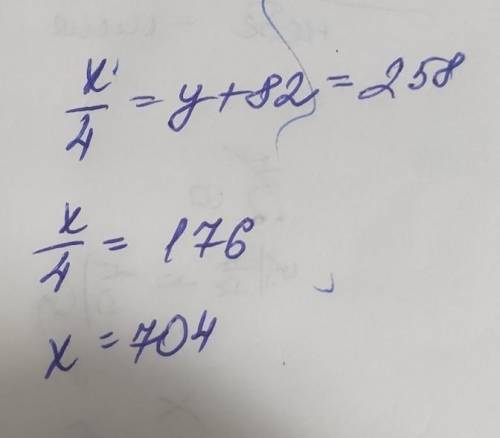 x/4 = y + 82 = 258
x/4 = 176
x = 704